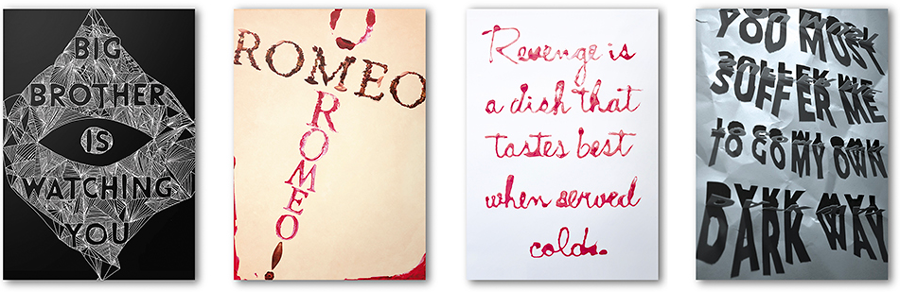 BIG
BROTHER
IS
WATCHING
YOU
O
ROMEO
ROMEO!
Revenge is
a dish that
tastes best
when served
cold.
YOU MUST
SUFFER ME
TO GO MY OWN
DARK WAY